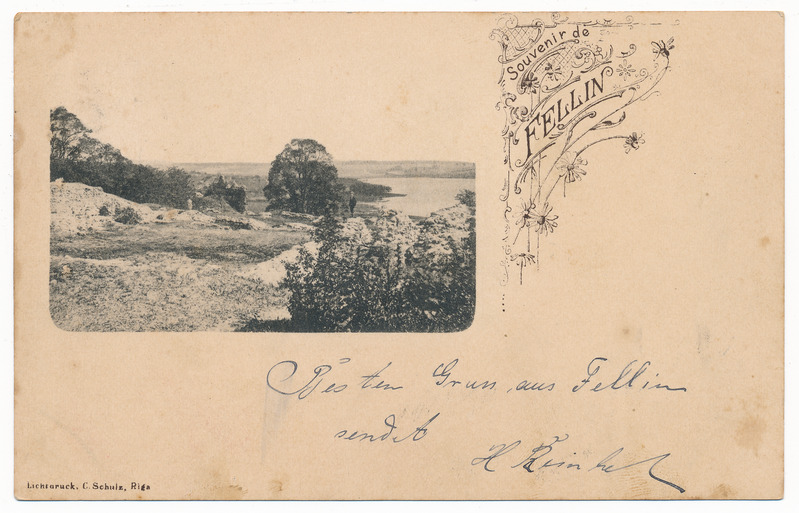 Souvenir de
FELLIN
Besten Gruss aus Fellin
sendet
H
Lichtdruck. C. Schulz, Riga